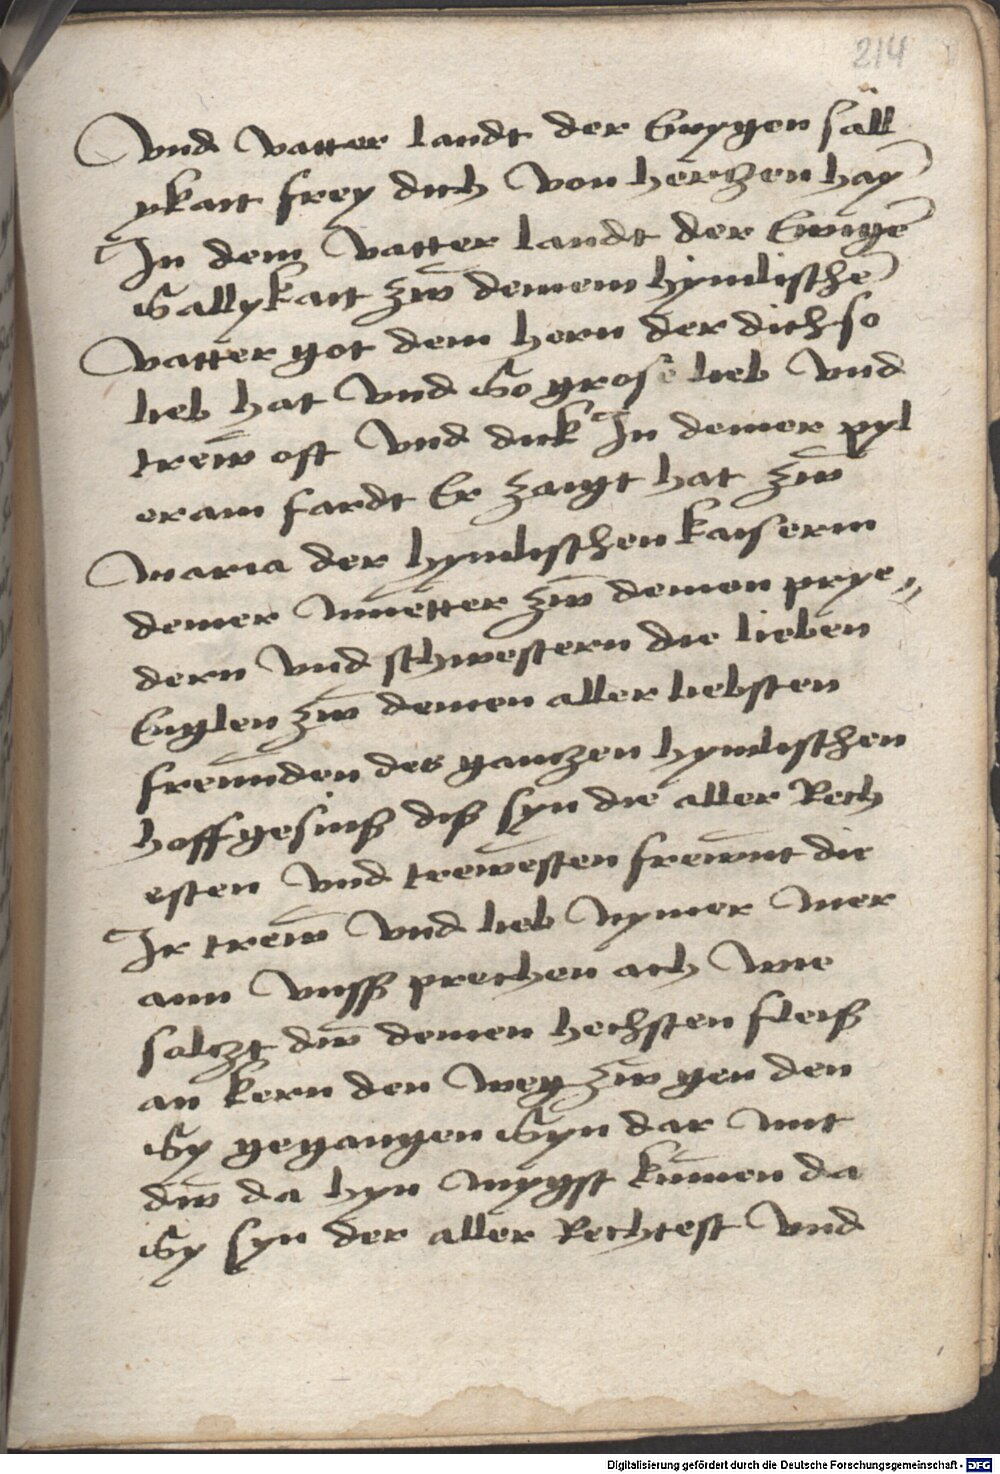 214
Vnd Vatter landt der Ewygen säll
ykait frey dich Von herczen hay̅
In dem Vatter landt der Ewige̅
Sallykait zw̅ deinem hymlische̅
Vatter got dem hern der dich so
lieb hat Vnd So grose lieb Vnd
trew̅ oft Vnd dick In deiner pyl
eram fardt Er zaigt hat zw̅
maria der hymlischen kaiserin
deiner muetter zw̅ deinen prye„
dern Vnd schwestern die lieben
Englen zw̅ deinen aller liebsten
freunden des ganczen hymlischen
hoffgesinß diß syn die aller Rech
esten Vnd trewesten frewnt die
Ir trew̅ Vnd lieb Nymer mer
ann Vnsß prechen ach Wie
salczt dw̅ deinen hechsten fleiß
an kern den Weg zw̅ gen den
Sy gegangen Syn dar mit
dw̅ da hyn mygst kumen da
Sy syn der aller Rechtest Vnd
Digitalisierung gefördert durch die Deutsche Forschungsgemeinschaft - DFG